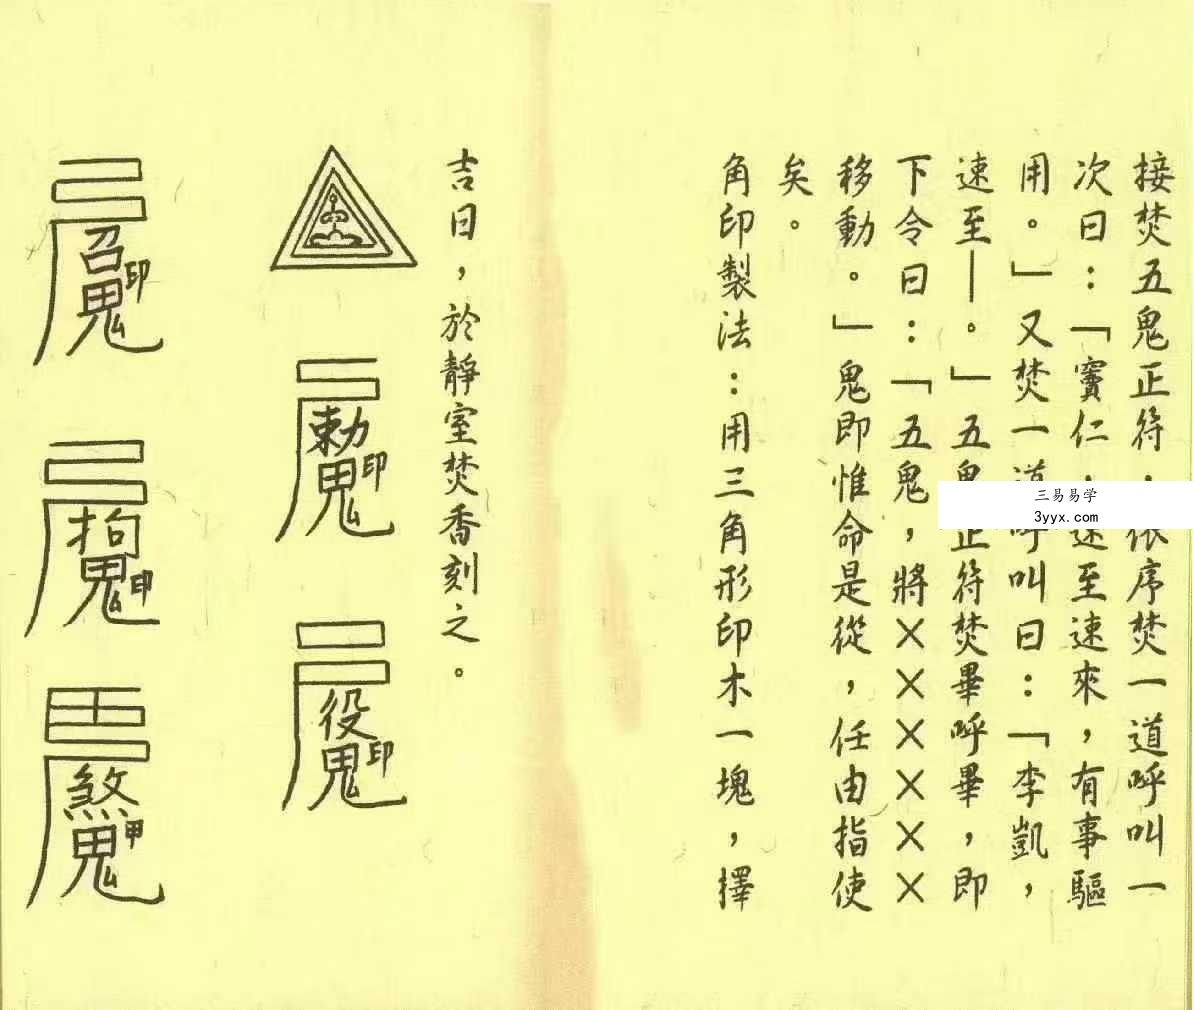 接焚五鬼正符，依序焚一道呼叫一
次曰：「竇仁，速至速來，有事驅
用。」又焚一道呼叫曰：「李凱，
速至—。」五鬼正符焚畢呼畢，即
下令曰：「五鬼，將××××××
移動。」鬼即惟命是從，任由指使
矣。
角印製法：用三角形印木一塊，擇
吉日，於靜室焚香刻之。
勅鬼印
役鬼印
召鬼印
拘鬼印
煞鬼甲
三易易学
3yyx.com